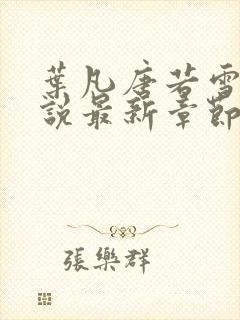 葉凡唐若雪
說最新章節
張樂群